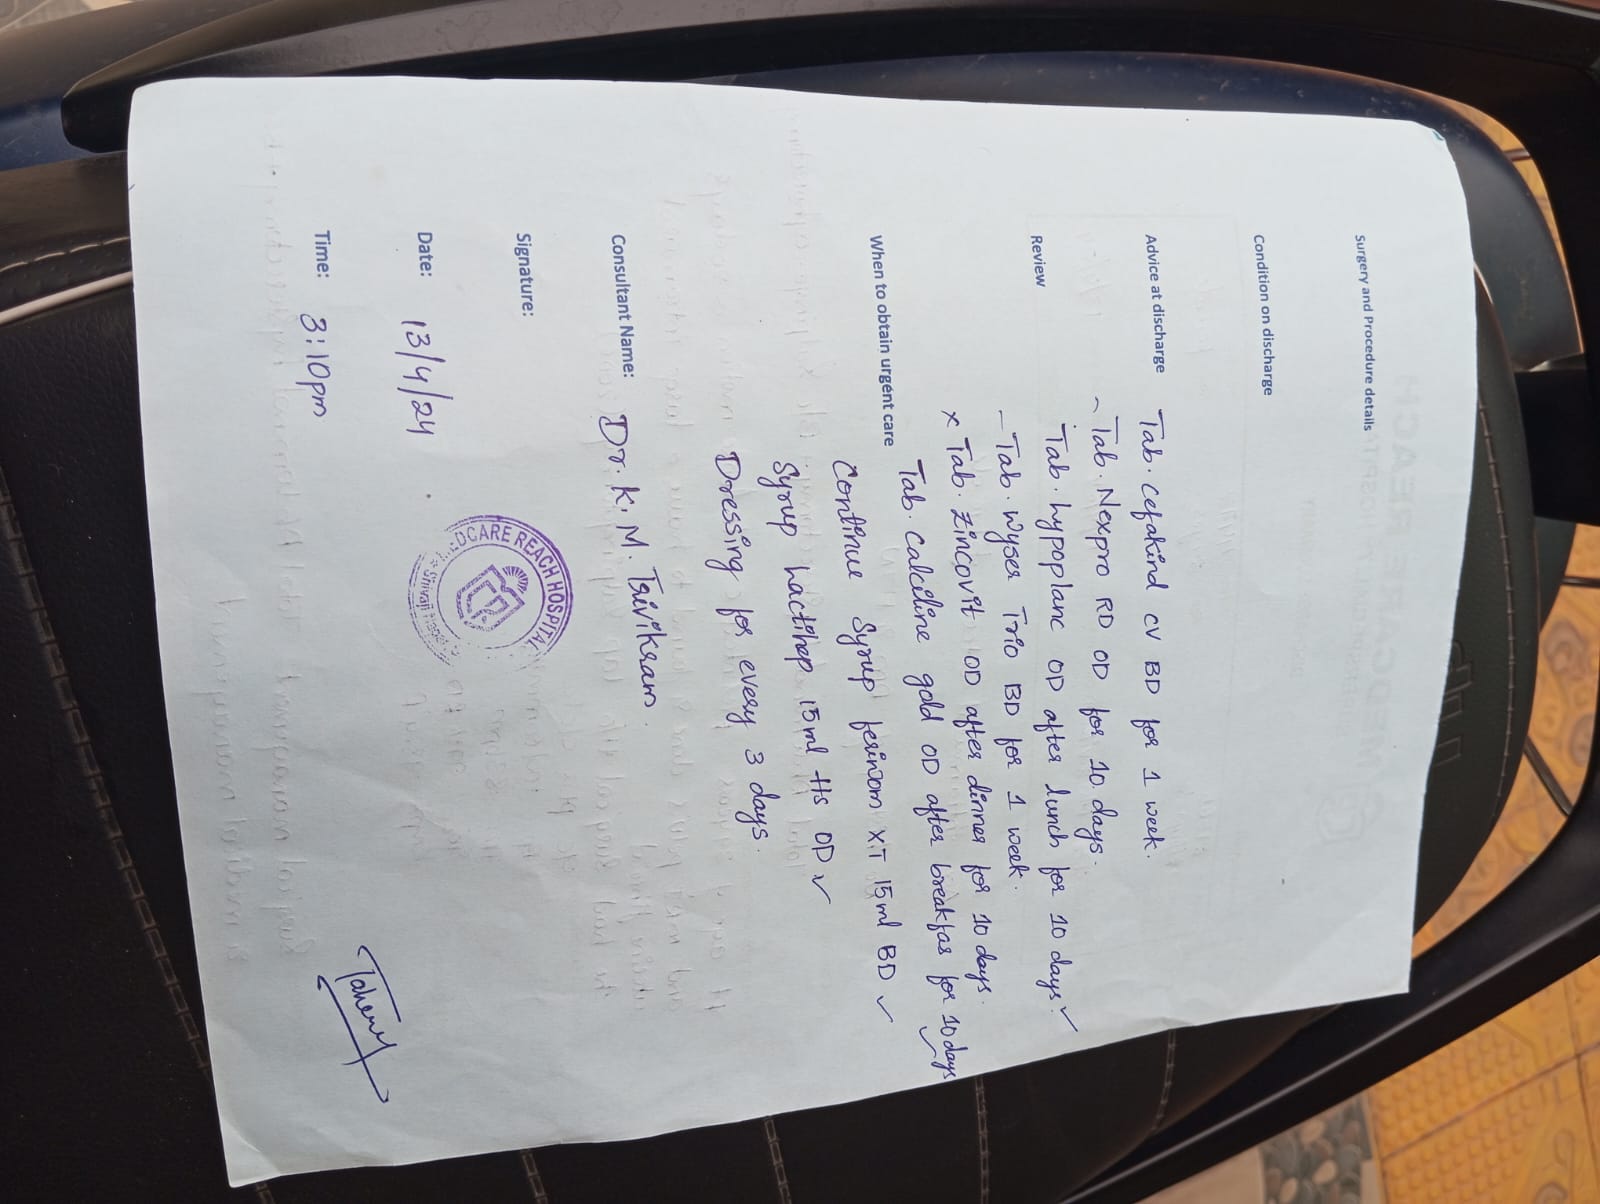 Surgery and Procedure details
Condition on discharge
Advice at discharge
Tab. cefakind CV BD for 1 week.
- Tab. Nexpro RD OD for 10 days.
Review
Tab. hypoplanc OD after lunch for 10 days. ✓
- Tab. Wyser Trio BD for 1 week.
x Tab. zincovit OD after dinner for 10 days.
Tab. calciline gold OD after breakfas for 10 days ✓
When to obtain urgent care
Continue Syrup ferinom XT 15ml BD ✓
Syrup Lactihep 15ml Hs OD ✓
Dressing for every 3 days.
Consultant Name: Dr. K. M. Trivikram.
Signature:
Date: 13/4/24
Time: 3:10pm
CARE REACH HOSPITAL